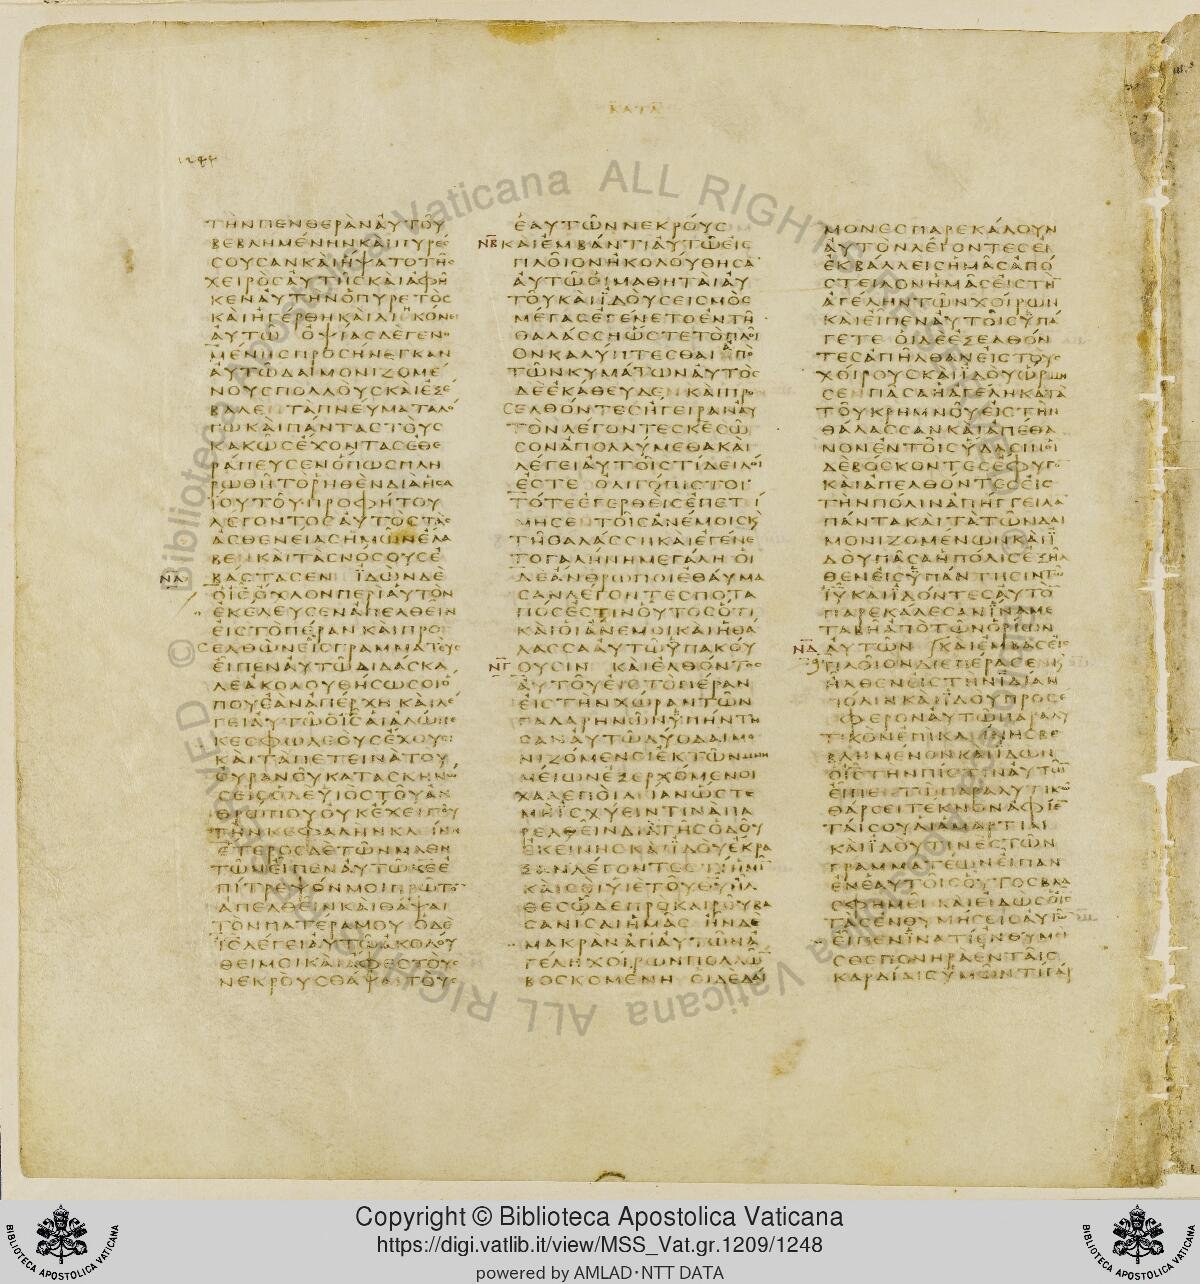 ΚΑΤΑ
1244
ΤΗΝΠΕΝΘΕΡΑΝΑΥΤΟΥ
ΒΕΒΛΗΜΕΝΗΝΚΑΙΠΥΡΕΣ
ΣΟΥΣΑΝΚΑΙΗΨΑΤΟΤΗΣ
ΧΕΙΡΟΣΑΥΤΗΣΚΑΙΑΦΗ
ΚΕΝΑΥΤΗΝΟΠΥΡΕΤΟΣ
ΚΑΙΗΓΕΡΘΗΚΑΙΔΙΗΚΟΝΕΙ
ΑΥΤΩ ΟΨΙΑΣΔΕΓΕΝΟ
ΜΕΝΗΣΠΡΟΣΗΝΕΓΚΑΝ
ΑΥΤΩΔΑΙΜΟΝΙΖΟΜΕ
ΝΟΥΣΠΟΛΛΟΥΣΚΑΙΕΞΕ
ΒΑΛΕΝΤΑΠΝΕΥΜΑΤΑΛΟ
ΓΩΚΑΙΠΑΝΤΑΣΤΟΥΣ
ΚΑΚΩΣΕΧΟΝΤΑΣΕΘΕ
ΡΑΠΕΥΣΕΝΟΠΩΣΠΛΗ
ΡΩΘΗΤΟΡΗΘΕΝΔΙΑΗΣΑ
ΙΟΥΤΟΥΠΡΟΦΗΤΟΥ
ΛΕΓΟΝΤΟΣΑΥΤΟΣΤΑΣ
ΑΣΘΕΝΕΙΑΣΗΜΩΝΕΛΑ
ΒΕΝΚΑΙΤΑΣΝΟΣΟΥΣΕ
ΝΑ ΒΑΣΤΑΣΕΝ ΙΔΩΝΔΕ
ΟΙΣΟΧΛΟΝΠΕΡΙΑΥΤΟΝ
ΕΚΕΛΕΥΣΕΝΑΠΕΛΘΕΙΝ
ΕΙΣΤΟΠΕΡΑΝΚΑΙΠΡΟΣ
ΕΛΘΩΝΕΙΣΓΡΑΜΜΑΤΕΥΣ
ΕΙΠΕΝΑΥΤΩΔΙΔΑΣΚΑ
ΛΕΑΚΟΛΟΥΘΗΣΩΣΟΙΟ
ΠΟΥΕΑΝΑΠΕΡΧΗΚΑΙΛΕ
ΓΕΙΑΥΤΩΟΙΣΑΙΑΛΩΠΕ
ΚΕΣΦΩΛΕΟΥΣΕΧΟΥΣΙ
ΚΑΙΤΑΠΕΤΕΙΝΑΤΟΥ
ΟΥΡΑΝΟΥΚΑΤΑΣΚΗΝΩ
ΣΕΙΣΟΔΕΥΙΟΣΤΟΥΑΝ
ΘΡΩΠΟΥΟΥΚΕΧΕΙΠΟΥ
ΤΗΝΚΕΦΑΛΗΝΚΛΙΝΗ
ΕΤΕΡΟΣΔΕΤΩΝΜΑΘΗ
ΤΩΝΕΙΠΕΝΑΥΤΩΚΕΕ
ΠΙΤΡΕΨΟΝΜΟΙΠΡΩΤΟΝ
ΑΠΕΛΘΕΙΝΚΑΙΘΑΨΑΙ
ΤΟΝΠΑΤΕΡΑΜΟΥ ΟΔΕ
ΙΣΛΕΓΕΙΑΥΤΩΑΚΟΛΟΥ
ΘΕΙΜΟΙΚΑΙΑΦΕΣΤΟΥΣ
ΝΕΚΡΟΥΣΘΑΨΑΙΤΟΥΣ
ΕΑΥΤΩΝΝΕΚΡΟΥΣ
ΝΒ ΚΑΙΕΜΒΑΝΤΙΑΥΤΩΕΙΣ
ΠΛΟΙΟΝΗΚΟΛΟΥΘΗΣΑ
ΑΥΤΩΟΙΜΑΘΗΤΑΙΑΥ
ΤΟΥΚΑΙΙΔΟΥΣΕΙΣΜΟΣ
ΜΕΓΑΣΕΓΕΝΕΤΟΕΝΤΗ
ΘΑΛΑΣΣΗΩΣΤΕΤΟΠΛΟΙ
ΟΝΚΑΛΥΠΤΕΣΘΑΙΑΠΟ
ΤΩΝΚΥΜΑΤΩΝΑΥΤΟΣ
ΔΕΕΚΑΘΕΥΔΕΝΚΑΙΠΡΟ
ΣΕΛΘΟΝΤΕΣΗΓΕΙΡΑΝΑΥ
ΤΟΝΛΕΓΟΝΤΕΣΚΕΣΩ
ΣΟΝΑΠΟΛΛΥΜΕΘΑΚΑΙ
ΛΕΓΕΙΑΥΤΟΙΣΤΙΔΕΙΛΟΙ
ΕΣΤΕ ΟΛΙΓΟΠΙΣΤΟΙ
ΤΟΤΕΕΓΕΡΘΕΙΣΕΠΕΤΙ
ΜΗΣΕΝΤΟΙΣΑΝΕΜΟΙΣΚ
ΤΗΘΑΛΑΣΣΗΚΑΙΕΓΕΝΕ
ΤΟΓΑΛΗΝΗΜΕΓΑΛΗ ΟΙ
ΔΕΑΝΘΡΩΠΟΙΕΘΑΥΜΑ
ΣΑΝΛΕΓΟΝΤΕΣΠΟΤΑ
ΠΟΣΕΣΤΙΝΟΥΤΟΣΟΤΙ
ΚΑΙΟΙΑΝΕΜΟΙΚΑΙΗΘΑ
ΛΑΣΣΑΑΥΤΩΥΠΑΚΟΥ
ΝΓ ΟΥΣΙΝ ΚΑΙΕΛΘΟΝΤΟΣ
ΑΥΤΟΥΕΙΣΤΟΠΕΡΑΝ
ΕΙΣΤΗΝΧΩΡΑΝΤΩΝ
ΓΑΔΑΡΗΝΩΝΥΠΗΝΤΗ
ΣΑΝΑΥΤΩΔΥΟΔΑΙΜΟ
ΝΙΖΟΜΕΝΟΙΕΚΤΩΝΜΝΗ
ΜΕΙΩΝΕΞΕΡΧΟΜΕΝΟΙ
ΧΑΛΕΠΟΙΛΙΑΝΩΣΤΕ
ΜΗΙΣΧΥΕΙΝΤΙΝΑΠΑ
ΡΕΛΘΕΙΝΔΙΑΤΗΣΟΔΟΥ
ΕΚΕΙΝΗΣΚΑΙΙΔΟΥΕΚΡΑ
ΞΑΝΛΕΓΟΝΤΕΣΤΙΗΜΙ
ΚΑΙΣΟΙΥΙΕΤΟΥΘΥΗΛ
ΘΕΣΩΔΕΠΡΟΚΑΙΡΟΥΒΑ
ΣΑΝΙΣΑΙΗΜΑΣ ΗΝΔΕ
ΜΑΚΡΑΝΑΠΑΥΤΩΝΑ
ΓΕΛΗΧΟΙΡΩΝΠΟΛΛΩ
ΒΟΣΚΟΜΕΝΗ ΟΙΔΕΔΑΙ
ΜΟΝΕΣΠΑΡΕΚΑΛΟΥΝ
ΑΥΤΟΝΛΕΓΟΝΤΕΣΕΙ
ΕΚΒΑΛΛΕΙΣΗΜΑΣΑΠΟ
ΣΤΕΙΛΟΝΗΜΑΣΕΙΣΤΗ
ΑΓΕΛΗΝΤΩΝΧΟΙΡΩΝ
ΚΑΙΕΙΠΕΝΑΥΤΟΙΣΥΠΑ
ΓΕΤΕ ΟΙΔΕΕΞΕΛΘΟΝ
ΤΕΣΑΠΗΛΘΑΝΕΙΣΤΟΥΣ
ΧΟΙΡΟΥΣΚΑΙΙΔΟΥΩΡΜΗ
ΣΕΝΠΑΣΑΗΑΓΕΛΗΚΑΤΑ
ΤΟΥΚΡΗΜΝΟΥΕΙΣΤΗΝ
ΘΑΛΑΣΣΑΝΚΑΙΑΠΕΘΑ
ΝΟΝΕΝΤΟΙΣΥΔΑΣΙΝΟΙ
ΔΕΒΟΣΚΟΝΤΕΣΕΦΥΓΟ
ΚΑΙΑΠΕΛΘΟΝΤΕΣΕΙΣ
ΤΗΝΠΟΛΙΝΑΠΗΓΓΕΙΛΑ
ΠΑΝΤΑΚΑΙΤΑΤΩΝΔΑΙ
ΜΟΝΙΖΟΜΕΝΩΝΚΑΙΙ
ΔΟΥΠΑΣΑΗΠΟΛΙΣΕΞΗΛ
ΘΕΝΕΙΣΥΠΑΝΤΗΣΙΝΤΟΥ
ΙΥΚΑΙΙΔΟΝΤΕΣΑΥΤΟ
ΠΑΡΕΚΑΛΕΣΑΝΙΝΑΜΕ
ΤΑΒΗΑΠΟΤΩΝΟΡΙΩΝ
ΝΔ ΑΥΤΩΝ ΚΑΙΕΜΒΑΣΕΙΣ
ΠΛΟΙΟΝΔΙΕΠΕΡΑΣΕΝΚ
ΗΛΘΕΝΕΙΣΤΗΝΙΔΙΑΝ
ΠΟΛΙΝΚΑΙΙΔΟΥΠΡΟΣΕ
ΦΕΡΟΝΑΥΤΩΠΑΡΑΛΥ
ΤΙΚΟΝΕΠΙΚΛΙΝΗΣΒΕ
ΒΛΗΜΕΝΟΝΚΑΙΙΔΩΝ
ΟΙΣΤΗΝΠΙΣΤΙΝΑΥΤΩ
ΕΙΠΕΝΤΩΠΑΡΑΛΥΤΙΚΩ
ΘΑΡΣΕΙΤΕΚΝΟΝΑΦΙΕ
ΤΑΙΣΟΥΑΙΑΜΑΡΤΙΑΙ
ΚΑΙΙΔΟΥΤΙΝΕΣΤΩΝ
ΓΡΑΜΜΑΤΕΩΝΕΙΠΑΝ
ΕΝΕΑΥΤΟΙΣΟΥΤΟΣΒΛΑ
ΣΦΗΜΕΙ ΚΑΙΕΙΔΩΣΟΙΣ
ΤΑΣΕΝΘΥΜΗΣΕΙΣΑΥΤΩ
ΕΙΠΕΝΙΝΑΤΙΕΝΘΥΜΕΙ
ΣΘΕΠΟΝΗΡΑΕΝΤΑΙΣ
ΚΑΡΔΙΑΙΣΥΜΩΝΤΙΓΑΡ
© Biblioteca Apostolica Vaticana ALL RIGHTS RESERVED
Copyright © Biblioteca Apostolica Vaticana
https://digi.vatlib.it/view/MSS_Vat.gr.1209/1248
powered by AMLAD·NTT DATA
BIBLIOTECA APOSTOLICA VATICANA
BIBLIOTECA APOSTOLICA VATICANA